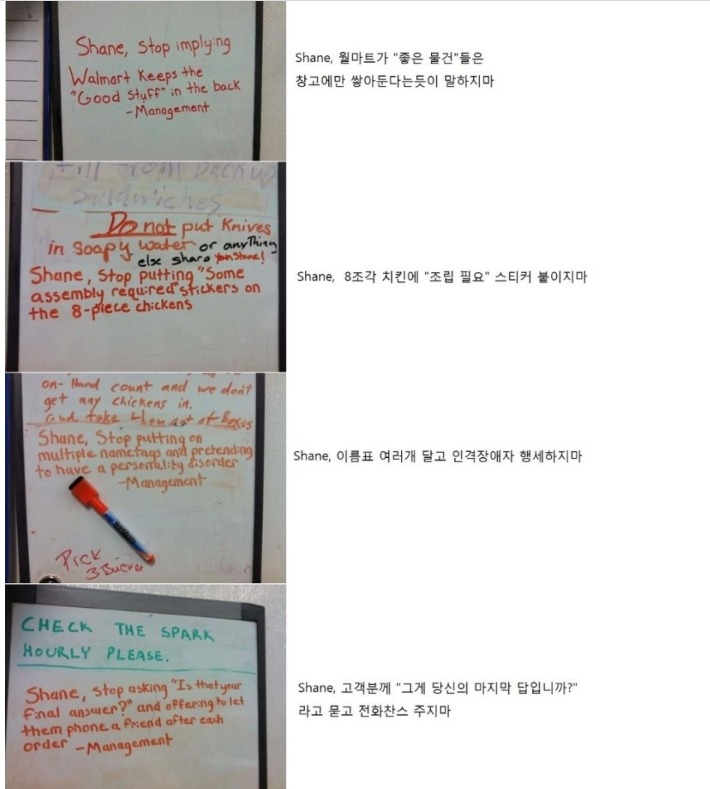 Shane, Stop implying
Walmart Keeps the
"Good Stuff" in the back
-Management
Shane, 월마트가 "좋은 물건"들은
창고에만 쌓아둔다는듯이 말하지마
Sandwiches
Do not put Knives
in soapy water or anything
else sharp Yes Shane!
Shane, Stop putting "Some
assembly required" stickers on
the 8-piece chickens
Shane, 8조각 치킨에 "조립 필요" 스티커 붙이지마
on-Hand count and we don't
get any chickens in.
and take them out of Boxes
Shane, Stop putting on
multiple nametags and pretending
to have a personality disorder
-Management
Pick
3 Bucket
Shane, 이름표 여러개 달고 인격장애자 행세하지마
CHECK THE SPARK
HOURLY PLEASE.
Shane, Stop asking "Is that your
final answer?" and offering to let
them phone a friend after each
order -Management
Shane, 고객분께 "그게 당신의 마지막 답입니까?"
라고 묻고 전화찬스 주지마